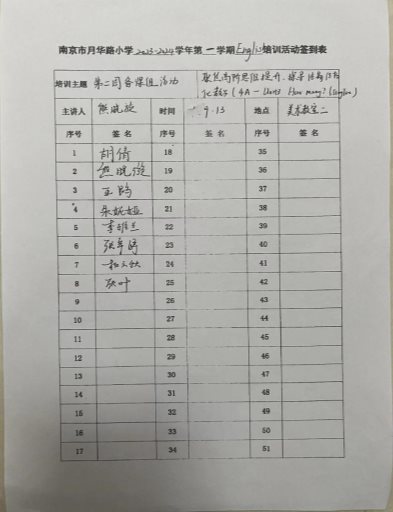 南京市月华路小学2023-2024学年第一学期English培训活动签到表
培训主题 第二周备课组活动 聚焦高阶思维提升,探寻
(4A-Unit3 How many?
主讲人 熊晓璇 时间 9.13 地点 美术教室二
序号 签名 序号 签名 序号 签名
1 胡倩 18 35
2 熊晓璇 19 36
3 20 37
4 21 38
5 22 39
6 23 40
7 24 41
8 25 42
9 26 43
10 27 44
11 28 45
12 29 46
13 30 47
14 31 48
15 32 49
16 33 50
17 34 51